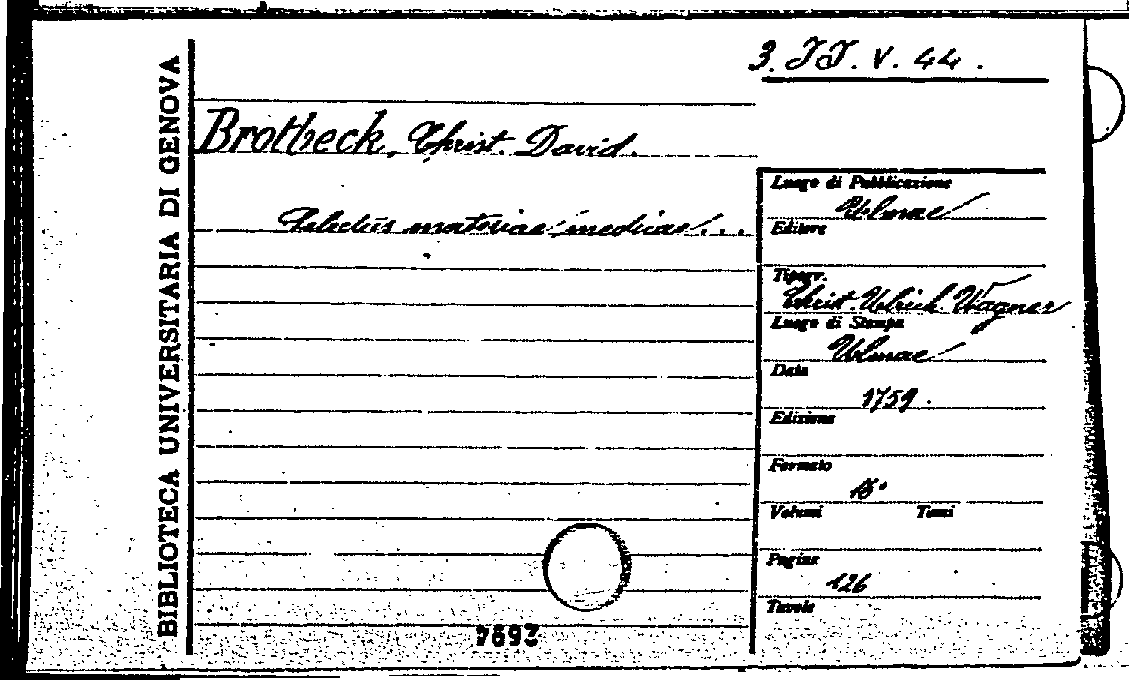 3. JJ. V. 44.
BIBLIOTECA UNIVERSITARIA DI GENOVA
Brotbeck, Christ. David.
Selectus materiae medicae...
Luogo di Pubblicazione
Ulmae
Editore
Tipogr.
Christ. Ulrich. Wagner
Luogo di Stampa
Ulmae
Data
1759.
Edizione
Formato
16°
Volumi Tomi
Pagine
126
Tavole